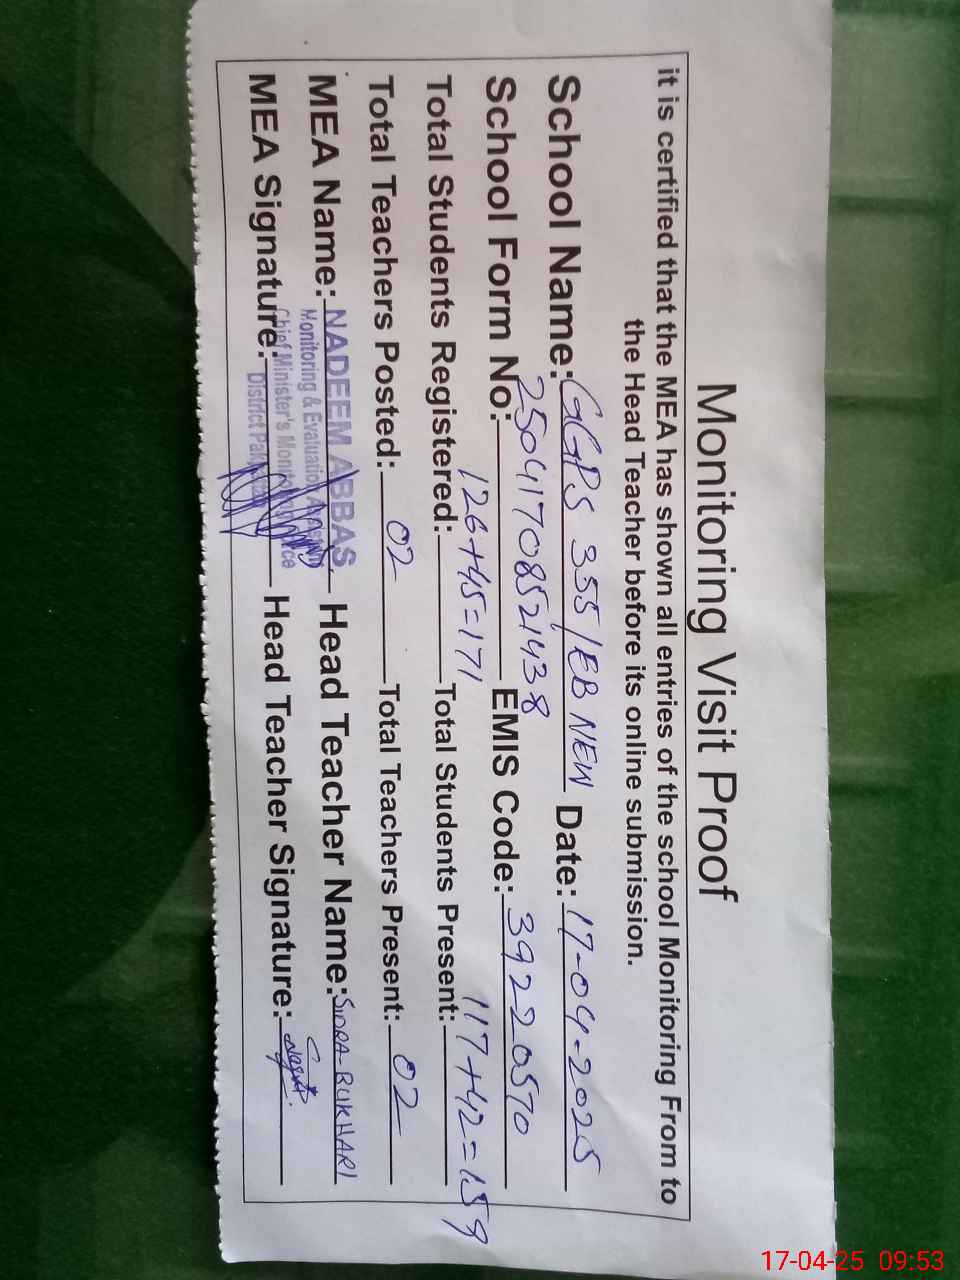 Monitoring Visit Proof
it is certified that the MEA has shown all entries of the school Monitoring From to
the Head Teacher before its online submission.
School Name: GGPS 355/EB NEW Date: 17-04-2025
School Form No: 25041708521438 EMIS Code: 39220570
Total Students Registered: 126+45=171 Total Students Present: 117+42=159
Total Teachers Posted: 02 Total Teachers Present: 02
MEA Name: NADEEM ABBAS Head Teacher Name: SIDRA-BUKHARI
Monitoring & Evaluation
Chief Minister's
MEA Signature: District Head Teacher Signature:
17-04-25 09:53